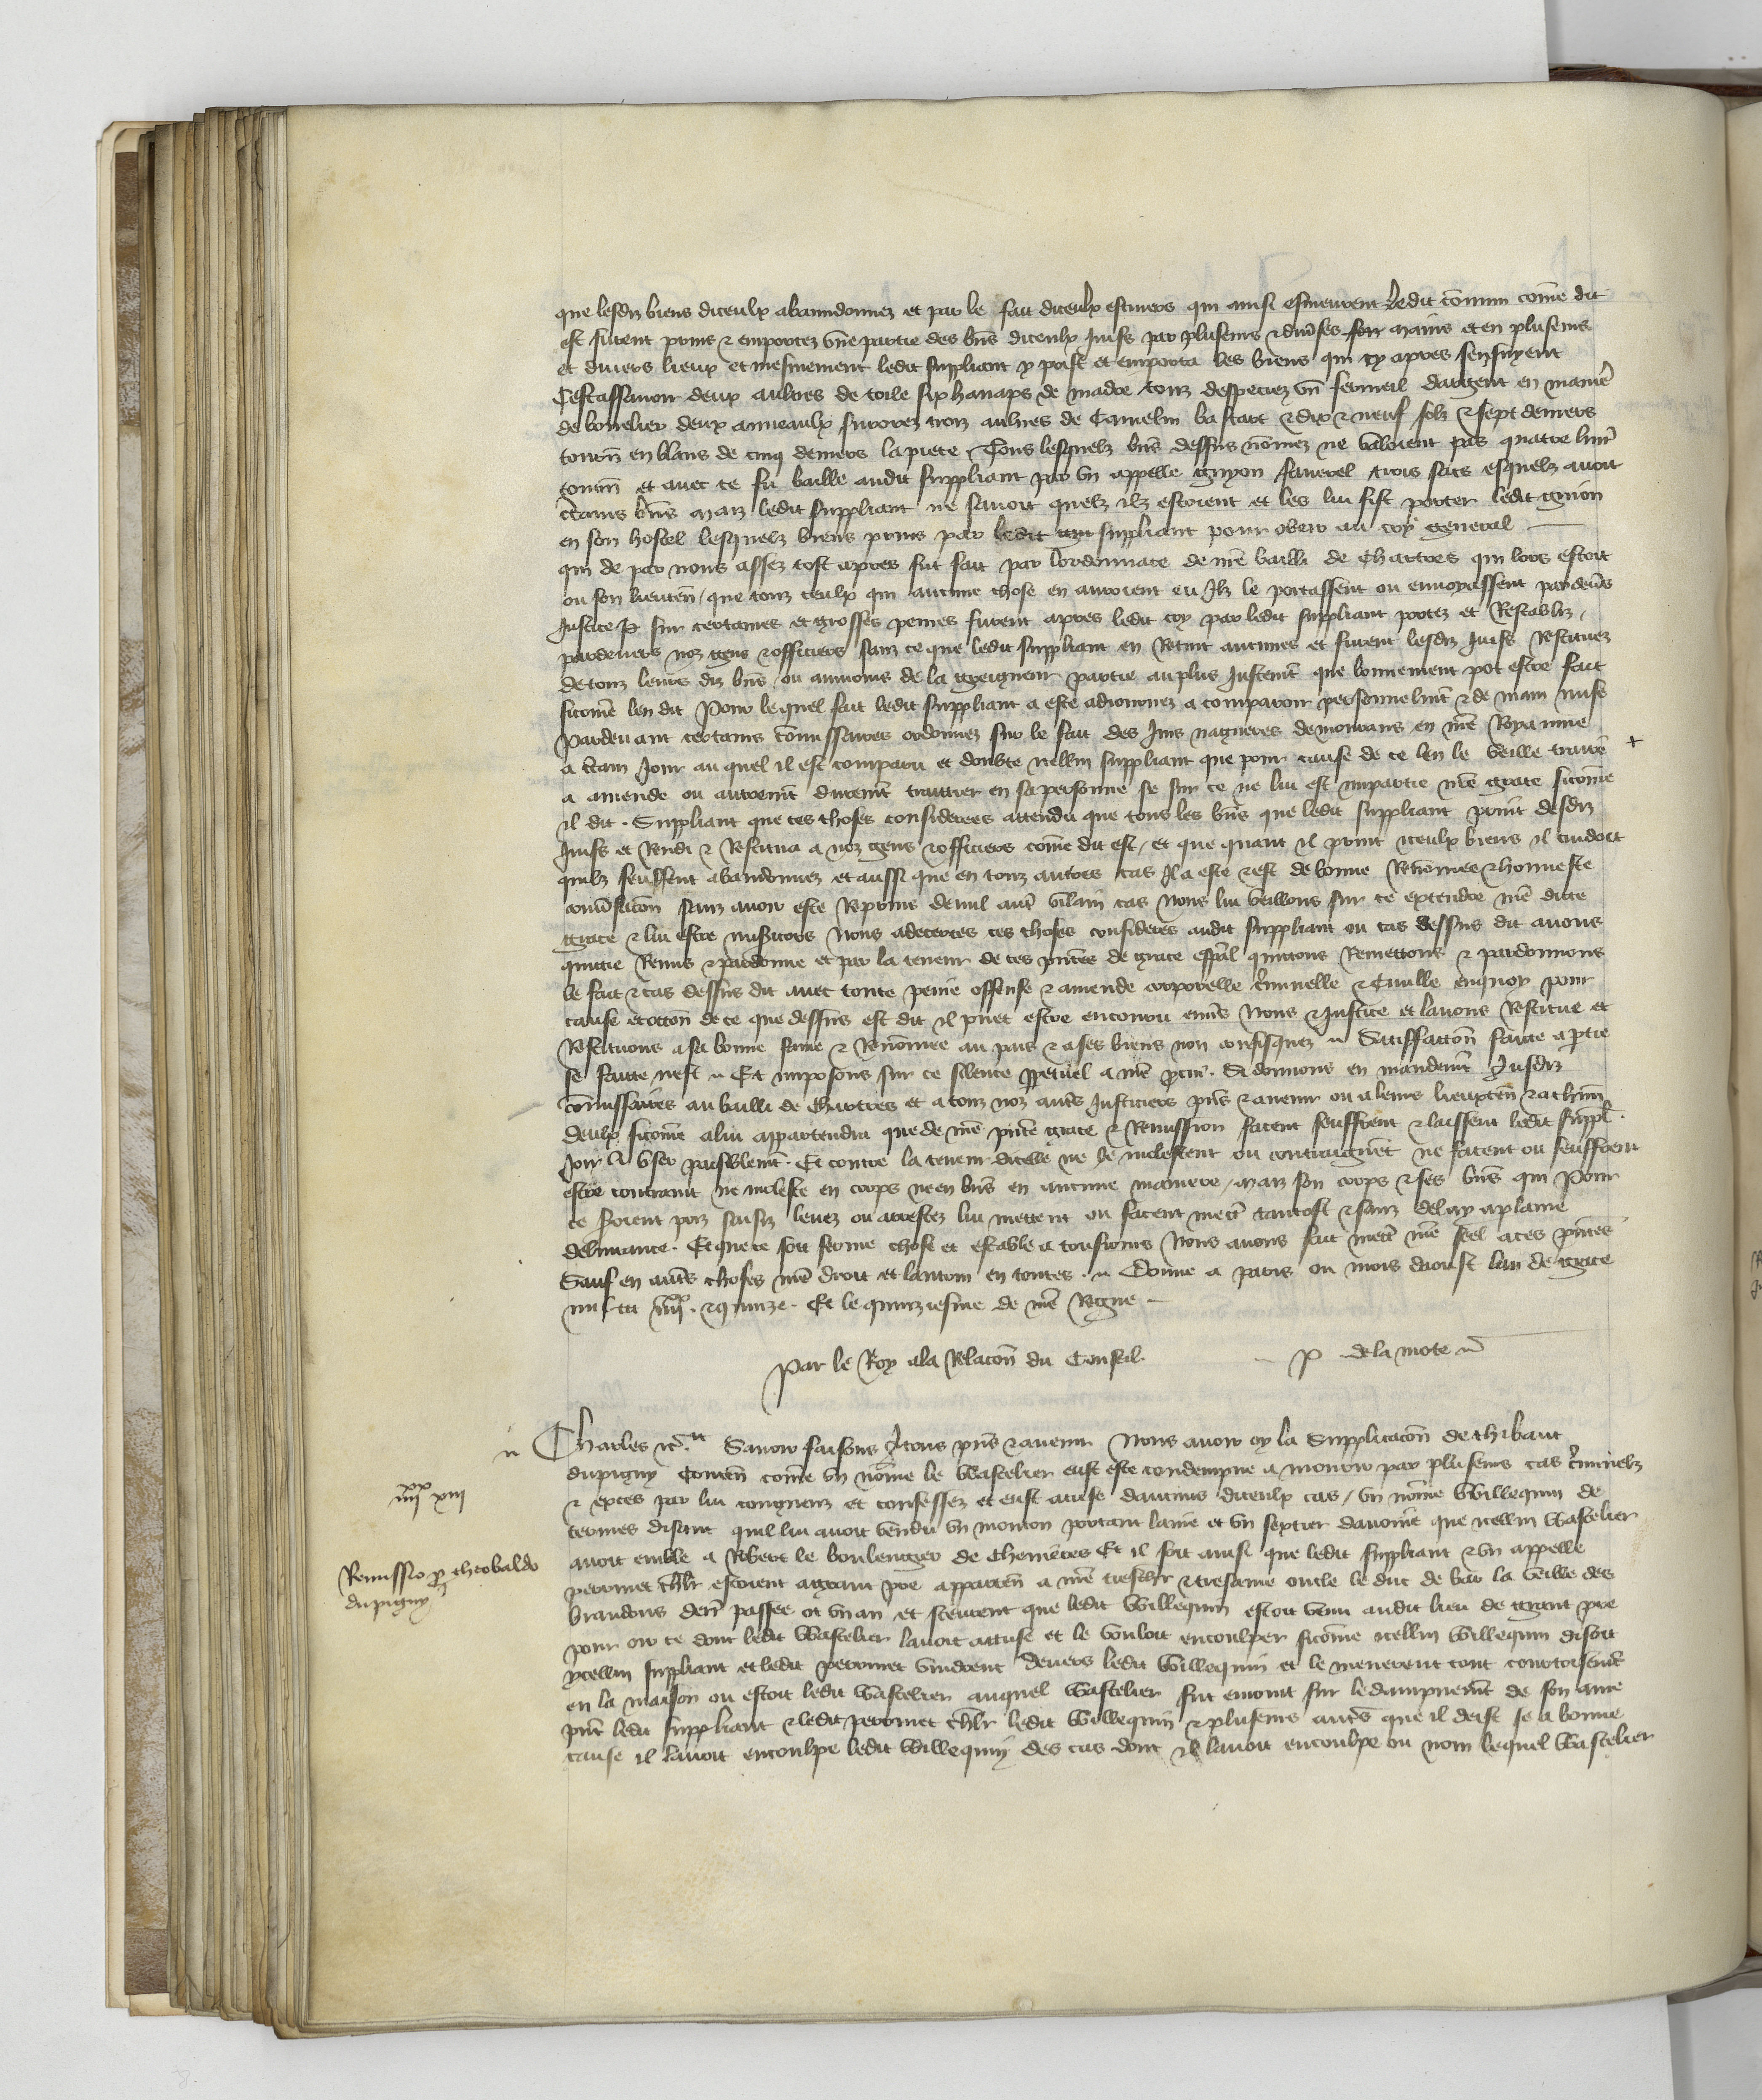 que lesdiz biens diceulx abanndonnez et par le fait diceulx escuiers qui ainsi esmeurent ledit comun come dit
est furent prins & emportez une partie des bns diceulx Juifs par plusieurs & divses mains et en plusieurs
et divers lieux et mesmement ledit suppliant y prist et emporta les biens qui cy apres sensuyent
Cestassavoir deux aulnes de toile six hanaps de madre touz despeciez un fermeil dargent en manie
de boucler deux anneaulx surorez trois aulnes de Camelin & dix & neuf solz & sept deniers
tourn en blans de cinq deniers la piece Tous lesquelz bns dessus nomez ne valoient pas quatre livr
tourn et avec ce fu baille audit suppliant par un appelle guyon faverel trois sacs esquelz avoit
ctains bns maiz ledit suppliant ne savoit quelz ilz estoient et les lui fist porter ledit guion
en son hostel lesquelz biens prins par ledit suppliant pour obeir au cry general
qui de par nous assez tost apres fut fait par lordonnace de nre bailli de Chartres qui lors estoit
ou son lieuten / que touz ceulx qui aucune chose en avoient eu Ilz le portassent ou envoyassent pardevs
Justice Et sur certaines et grosses peines furent apres ledit cry par ledit suppliant portez et Restabliz /
pardevers noz gens & officiers sanz ce que ledit suppliant en Retint aucunes et furent lesdiz Juifs Restituez
de touz leurs diz bns ou aumoins de la greigneur partie au plus Justemt que bonnement pot estre fait
sicome len dit Pour lequel fait ledit suppliant a este adiournez a comparoir personnelmt & de main mise
Pardevant certains comissaires ordonnez sur le fait des Juis nagueres demourans en nre Royaume
a ctain Jour auquel il est comparu et doubte icellui suppliant que pour cause de ce len le veille traire +
a amende ou autremt duremt traictier en sa personne se sur ce ne lui est impartie nre grace sicome
il dit . Suppliant que ces choses considerees attendu que tous les bns que ledit suppliant print desdiz
Juifs et Rendi & Restitua a noz gens & officiers come dit est / et que quant il print iceulx biens il cuidoit
quilz feussent abandonnez et aussi que en touz autres cas Il a este & est de bonne Renomee & honneste
convsacon sanz avoir este Reprins de nul autr vilain cas Nous lui veillons sur ce extendre nre dicte
grace & lui estre misicors Nous adecertes ces choses considerees audit suppliant ou cas dessus dit avons
quicte Remis & pardonne et par la teneur de ces pntes de grace espal quictons Remettons & pardonnons
le fait & cas dessus dit avec toute peine offense & amende corporelle criminelle & Civille enquoy pour
cause & occon de ce que dessus est dit il puet estre encouru envs Nous & Justice et lavons Restitue et
Restituons a sa bonne fame & Renomee au pais & a ses biens non confisquez Satisfaccon faicte a ptie
se faicte nest Et imposons sur ce silence ppetuel a nre procur . Si donnons en mandemt Ausdiz
comissaires au bailli de Chartres et a touz noz autrs Justiciers pns & avenir ou a leurs lieuxten & a chun
deulx sicome a lui appartendra que de nre pnte grace & Remission facent seuffrent & laissent ledit suppl .
Joir & user paisiblemt . Et contre la teneur dicelle ne le molestent ou contraignent ne facent ou seuffrent
estre contraint ne moleste en corps ne en bns en aucune maniere / maiz son corps & ses bns qui Pour
ce seroient priz saisiz levez ou arrestez lui mettent ou facent mectr tantost & sanz delay a plaine
delivrance . Et que ce soit ferme chose et estable a tousiours Nous avons fait mectr nre seel a ces pntes
Sauf en autrs choses nre droit et lautrui en toutes . Donne a paris ou mois daoust lan de grace
mil ccc iiiixx & quinze . Et le quinziesme de nre Regne
Par le Roy a la Relacon du Conseil P de la mote
Charles &c . Savoir faisons a tous pns & avenir Nous avoir oy la Supplicacon de thibaut
dupigny Conten come un nome le Wastelier eust este condempne a mourir par plusieurs cas criminelz
iiiixx xiii
& exces par lui congneuz et confessez et eust accuse daucuns diceulx cas / un nome Willequin de
termes disant quil lui avoit vendu un mouton portant laine et un sextier davoine que icellui wastelier
avoit emble a Robert le boulengier de Et il soit ainsi que ledit suppliant & un appelle
Remissio pro theobaldo
dupigny
perrinet estoient a grant pre apparten a nre treschr & tresame oncle le duc de bar la veille des
brandons derr passee ot un an et sceurent que ledit Willequin estoit venu audit lieu de grant pre
pour oir ce dont ledit Wastelier lavoit accuse et le vouloit encoulper sicome icellui willequin disoit
ycellui suppliant et ledit perrinet vindrent devers ledit Willequin et le menerent tout courtoisemt
en la maison ou estoit ledit wastelier auquel wastelier fut enioint sur le dampnemt de son ame
pnt ledit suppliant & ledit perrinet ledit Willequin & plusieurs autrs que il deist se a bonne
cause il lavoit encoulpe ledit willequin des cas dont il lavoit encoulpe ou non lequel Wastelier